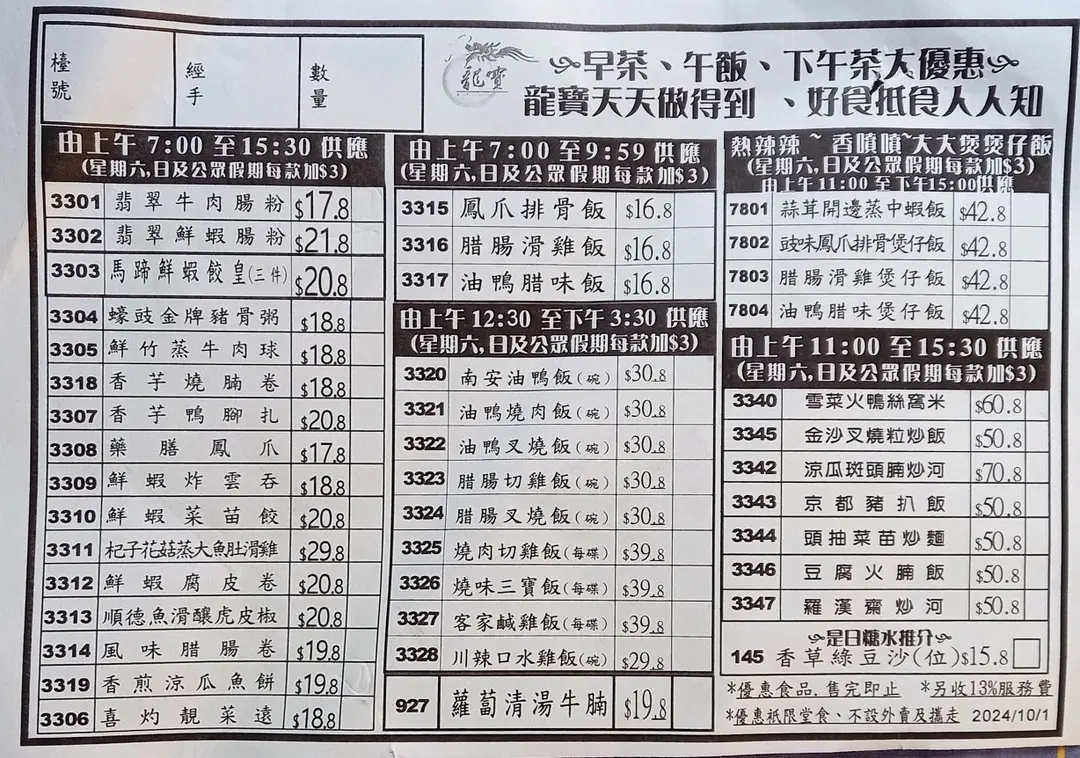 檯號
經手
數量
龍寶
早茶、午飯、下午茶大優惠
龍寶天天做得到 、好食抵食人人知
由上午 7:00 至 15:30 供應
(星期六,日及公眾假期每款加$3)
3301 翡翠牛肉腸粉 $17.8
3302 翡翠鮮蝦腸粉 $21.8
3303 馬蹄鮮蝦餃皇(三件) $20.8
3304 蠔豉金牌豬骨粥 $18.8
3305 鮮竹蒸牛肉球 $18.8
3318 香芋燒腩卷 $18.8
3307 香芋鴨腳扎 $20.8
3308 藥膳鳳爪 $17.8
3309 鮮蝦炸雲吞 $18.8
3310 鮮蝦菜苗餃 $20.8
3311 杞子花菇蒸大魚肚滑雞 $29.8
3312 鮮蝦腐皮卷 $20.8
3313 順德魚滑釀虎皮椒 $20.8
3314 風味腊腸卷 $19.8
3319 香煎涼瓜魚餅 $19.8
3306 喜灼靚菜遠 $18.8
由上午 7:00 至 9:59 供應
(星期六,日及公眾假期每款加$3)
3315 鳳爪排骨飯 $16.8
3316 腊腸滑雞飯 $16.8
3317 油鴨腊味飯 $16.8
由上午 12:30 至下午 3:30 供應
(星期六,日及公眾假期每款加$3)
3320 南安油鴨飯(碗) $30.8
3321 油鴨燒肉飯(碗) $30.8
3322 油鴨叉燒飯(碗) $30.8
3323 腊腸切雞飯(碗) $30.8
3324 腊腸叉燒飯(碗) $30.8
3325 燒肉切雞飯(每碟) $39.8
3326 燒味三寶飯(每碟) $39.8
3327 客家鹹雞飯(每碟) $39.8
3328 川辣口水雞飯(碗) $29.8
927 蘿蔔清湯牛腩 $19.8
熱辣辣~香噴噴~大大煲煲仔飯
(星期六,日及公眾假期每款加$3)
由上午11:00 至下午15:00供應
7801 蒜茸開邊蒸中蝦飯 $42.8
7802 豉味鳳爪排骨煲仔飯 $42.8
7803 腊腸滑雞煲仔飯 $42.8
7804 油鴨腊味煲仔飯 $42.8
由上午 11:00 至 15:30 供應
(星期六,日及公眾假期每款加$3)
3340 雪菜火鴨絲窩米 $60.8
3345 金沙叉燒粒炒飯 $50.8
3342 涼瓜斑頭腩炒河 $70.8
3343 京都豬扒飯 $50.8
3344 頭抽菜苗炒麵 $50.8
3346 豆腐火腩飯 $50.8
3347 羅漢齋炒河 $50.8
是日糖水推介
145 香草綠豆沙(位)$15.8
*優惠食品,售完即止 *另收13%服務費
*優惠祇限堂食、不設外賣及攜走 2024/10/1